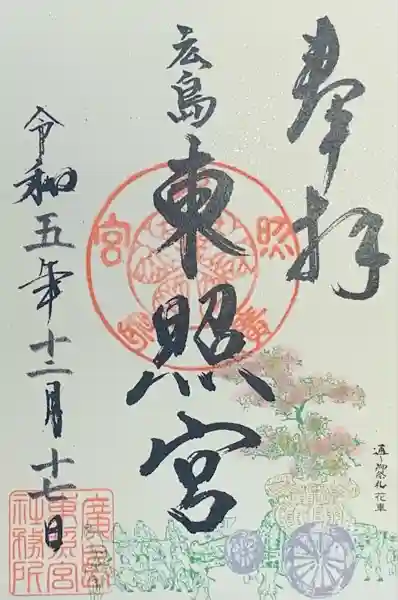 奉拝
広島
東照宮
令和五年十二月十七日
通り御祭礼 花車
廣島
東照宮
社務所